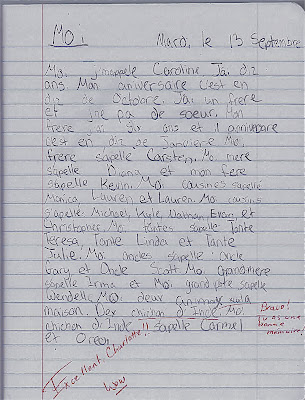 Moi
Mard, le 13 Septembre
Moi j'mappelle Caroline. J'ai diz
ans. Mon aniversaire c'est en
diz de Octobre. J'ai un frere
et ne pa de soeur. Mon
frere ans et l'anniversare
c'est en diz de Janviere Moi
frere s'apelle Carsten. Moi mere
s'apelle Diana et mon pere
s'apelle Kevin. Moi cousines s'apelle
Monica, Lauren et Lauren. Moi cousins
s'apelle Michael, Kyle, Nathan, Evan, et
Christopher. Moi tantes s'apelle Tante
Teresa, Tante Linda et Tante
Julie. Moi oncles s'apelle oncle
Gary et Oncle Scott. Moi Grandmere
s'apelle Irma et Moi grandpere s'apelle
Wendell. Moi deux animale a la
maison. Dex chichon d'Inde. Moi
chichon d'Inde s'apelle Carmel
et Oreo.
Bravo!
Tu as une
bonne
memoire!
Excellent, Charlotte!!
Wow